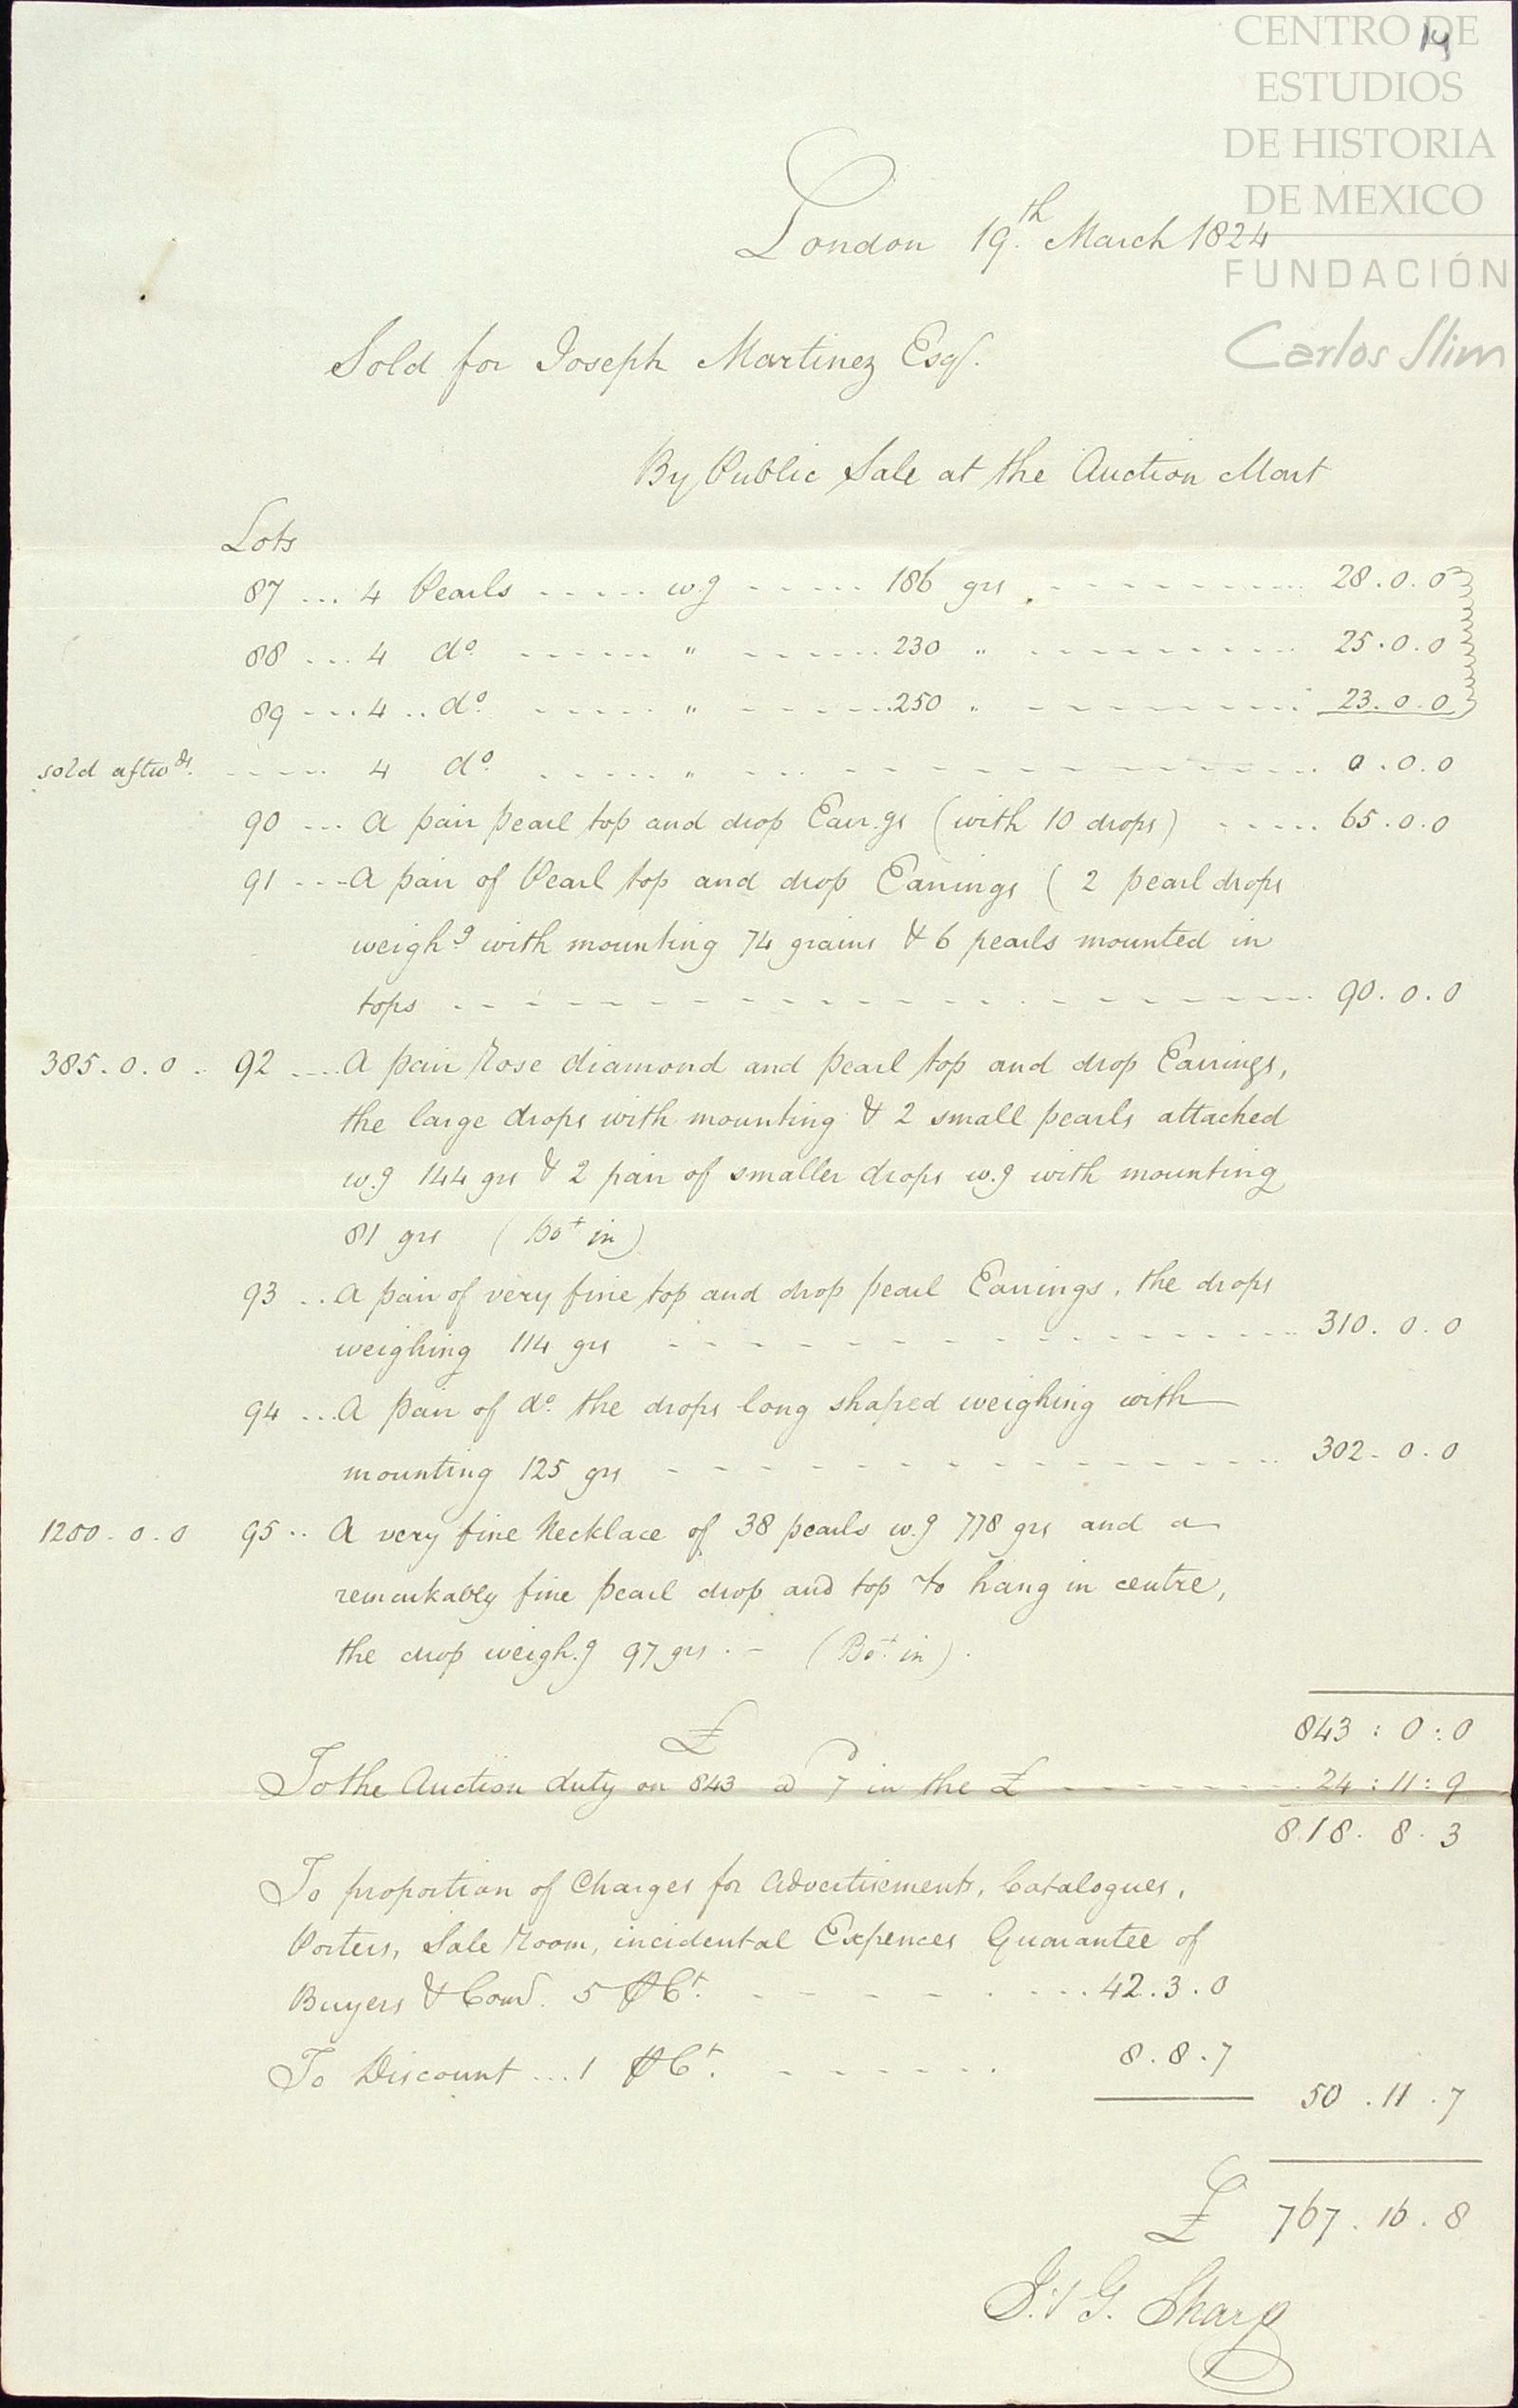 CENTRO DE
ESTUDIOS
DE HISTORIA
DE MEXICO
FUNDACIÓN
Carlos Slim
14
London 19th. March 1824
Sold for Joseph Martinez Esqr.
By Public Sale at the Auction Mart
Lots
87 ... 4 Pearls ..... w.g ..... 186 grs ......... 28.0.0
88 ... 4 do. ...... " ...... 230 " ......... 25.0.0
89 ... 4 .. do. ..... " ...... 250 " ......... 23.0.0
sold aftwds. ..... 4 do. ..... " ......... 0.0.0
90 ... A pair pearl top and drop Ear.gs (with 10 drops) ..... 65.0.0
91 ... A pair of Pearl top and drop Earrings ( 2 pearl drops
weighg with mounting 74 grains & 6 pearls mounted in
tops ......... 90.0.0
385.0.0 .. 92 .... A pair Rose diamond and pearl top and drop Earrings,
the large drops with mounting & 2 small pearls attached
w.g 144 grs & 2 pair of smaller drops w.g with mounting
81 grs (Bot in)
93 .. A pair of very fine top and drop pearl Earrings, the drops
weighing 114 grs ......... 310.0.0
94 ... A pair of do. the drops long shaped weighing with
mounting 125 grs ......... 302.0.0
1200.0.0 95 .. A very fine Necklace of 38 pearls w.g 778 grs and a
remarkably fine pearl drop and top to hang in centre,
the drop weigh.g 97 grs. - (Bot. in).
£ 843 : 0 : 0
To the Auction duty on 843 @ 7 in the £ ......... 24 : 11 : 9
818. 8. 3
To proportion of Charges for Advertisements, Catalogues,
Porters, Sale Room, incidental Expences Guarantee of
Buyers & Comn. 5 ₱Ct. ......... 42.3.0
To Discount ... 1 ₱Ct. ....... 8.8.7
50.11.7
£ 767.16.8
G. Sharp